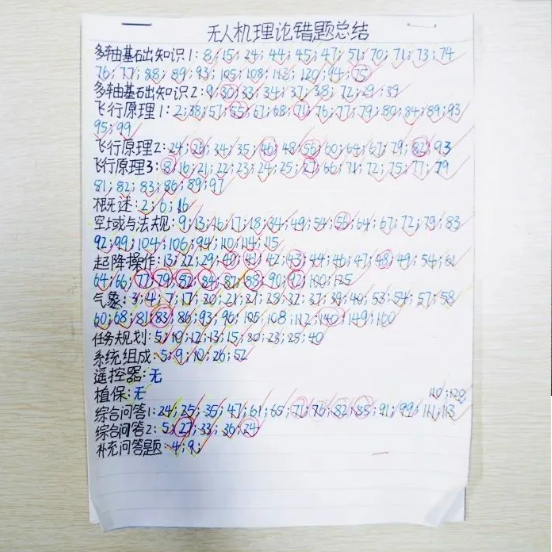 无人机理论错题总结
多轴基础知识1: 8; 15; 24; 44; 45; 47; 51; 70; 71; 73; 74
76; 77; 88; 89; 93; 105; 108; 113; 120; 94; 75
多轴基础知识2: 9; 30; 33; 34; 37; 38; 72; 39
飞行原理1: 2; 38; 57; 65; 67; 68; 71; 76; 77; 79; 80; 84; 89; 93
95; 99
飞行原理2: 24; 28; 34; 35; 46; 48; 56; 60; 64; 67; 79; 82; 93
飞行原理3: 8; 16; 21; 22; 23; 24; 25; 27; 66; 71; 72; 75; 77; 79
81; 82; 83; 86; 89; 97
概述: 2; 6; 16
空域与法规: 9; 13; 16; 17; 18; 34; 49; 54; 56; 64; 67; 72; 79; 83
92; 99; 104; 106; 94; 110; 114; 115
起降操作: 13; 22; 29; 40; 41; 42; 43; 44; 46; 47; 48; 49; 54; 62
64; 66; 77; 79; 82; 84; 87; 88; 90; 92;
气象: 3; 4; 7; 17; 20; 21; 27; 28; 32; 37; 39; 40; 53; 54; 57; 58
60; 68; 81; 83; 86; 93; 96; 105; 108; 112; 140; 149; 160
任务规划: 5; 10; 12; 13; 15; 20; 23; 25; 40
系统组成: 5; 9; 10; 26; 52
遥控器: 无
植保: 无
综合问答1: 24; 25; 35; 47; 61; 65; 71; 76; 82; 85; 91; 99; 111; 113
综合问答2: 5; 27; 33; 36; 24
补充问答题: 4; 9;